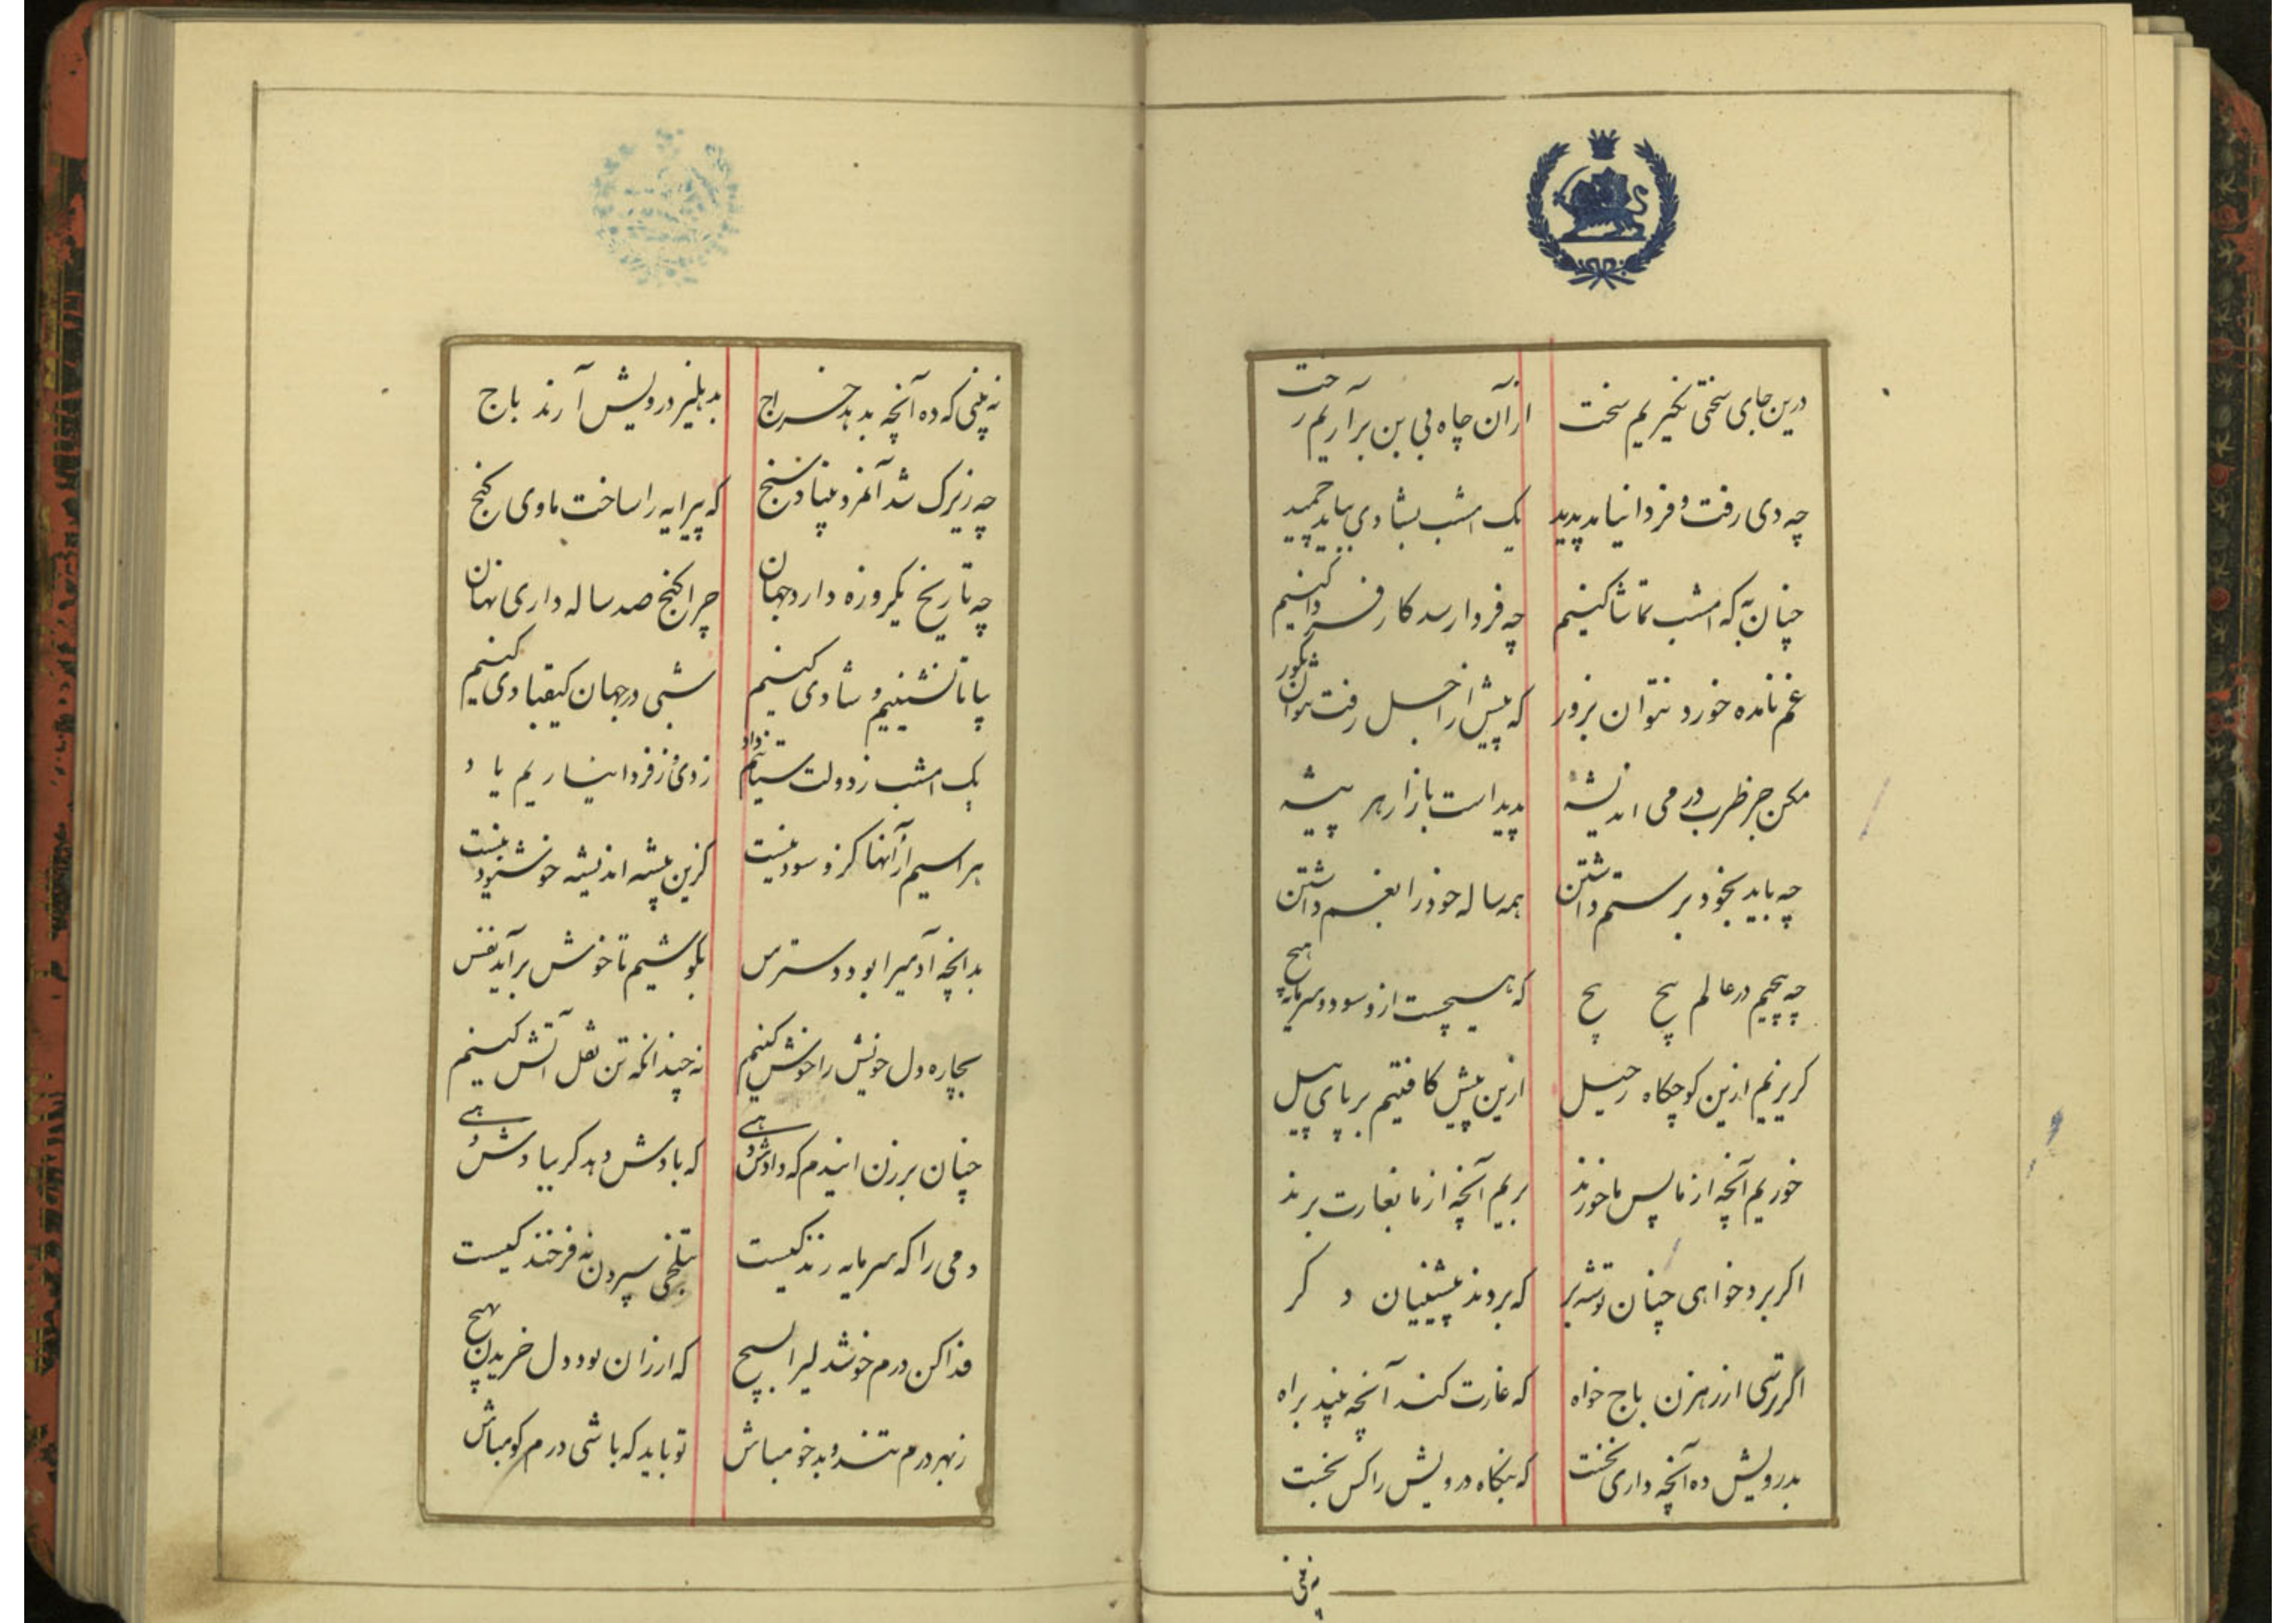 درین جای سختی نگیریم سخت از آن چاه بی بن برآریم رخت
چه دی رفت و فردا نیامد پدید یک امشب بشادی بباید چمید
چنان به که امشب تماشا کنیم چه فردا رسد کار فردا کنیم
غم نامده خورد نتوان بزور که پیش از اجل رفت نتوان بگور
مکن جز طرب در می اندیشهٔ پدید است بازار هر پیشه
چه باید بخود بر ستم داشتن همه ساله خود را بغم داشتن
چه پیچیم در عالم پیچ پیچ که هیچست ازو سود و سرمایه هیچ
کریزیم ازین کوچکاه رحیل ازین پیش کافتیم بر پای پیل
خوریم آنچه از ما پس ما خورند بریم آنچه از ما بغارت برند
اکر برد خواهی چنان توشه بر که بردند پیشینیان دکر
اگر ترسی از رهزن باج خواه که غارت کند آنچه بیند براه
بدرویش ده آنچه داری نخست که بنکاه درویش را کس نجست
نه بینی
نه بینی که ده آنچه بدهد خراج بدهلیز درویش آرند باج
چه زیرک شد آنمرد بنیاد سنج که پیرایه را ساخت ماوی کنج
چه تاریخ یکروزه دارد جهان چرا کنج صد ساله داری نهان
بیا تا نشینیم و شادی کنیم شبی در جهان کیقبادی کنیم
یک امشب ز دولت ستانیم داد ز دی و ز فردا نیاریم یاد
بر اسیم از آنها کزو سود نیست کزین پیشه اندیشه خوشنود نیست
بدانچه آدمیرا بود دسترس بکوشیم تا خوش برآید نفس
بچاره دل خویش را خوش کنیم نه چندانکه تن نعل آتش کنیم
چنان برزن ایندم که دادش دهی که بادش دهد کر بیادش دهی
دمی را که سرمایه زندکیست بتلخی سپردن نه فرخندکیست
فدا کن درم خوشدلیرا بسیچ که ارزان بود دل خریدن بهیچ
ز بهر درم تند و بدخو مباش تو باید که باشی درم کو مباش